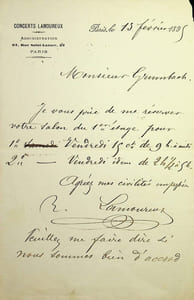 CONCERTS LAMOUREUX
ADMINISTRATION
62, Rue Saint-Lazare, 62
PARIS
Paris, le 13 février 189
Monsieur Grumbach,
Je vous prie de me réserver
votre salon du 1er étage pour
1° Vendredi 15 et de 9h à
2° Vendredi idem de
Agréez mes civilités
Lamoureux
Veuillez me faire dire si
nous sommes bien d'accord